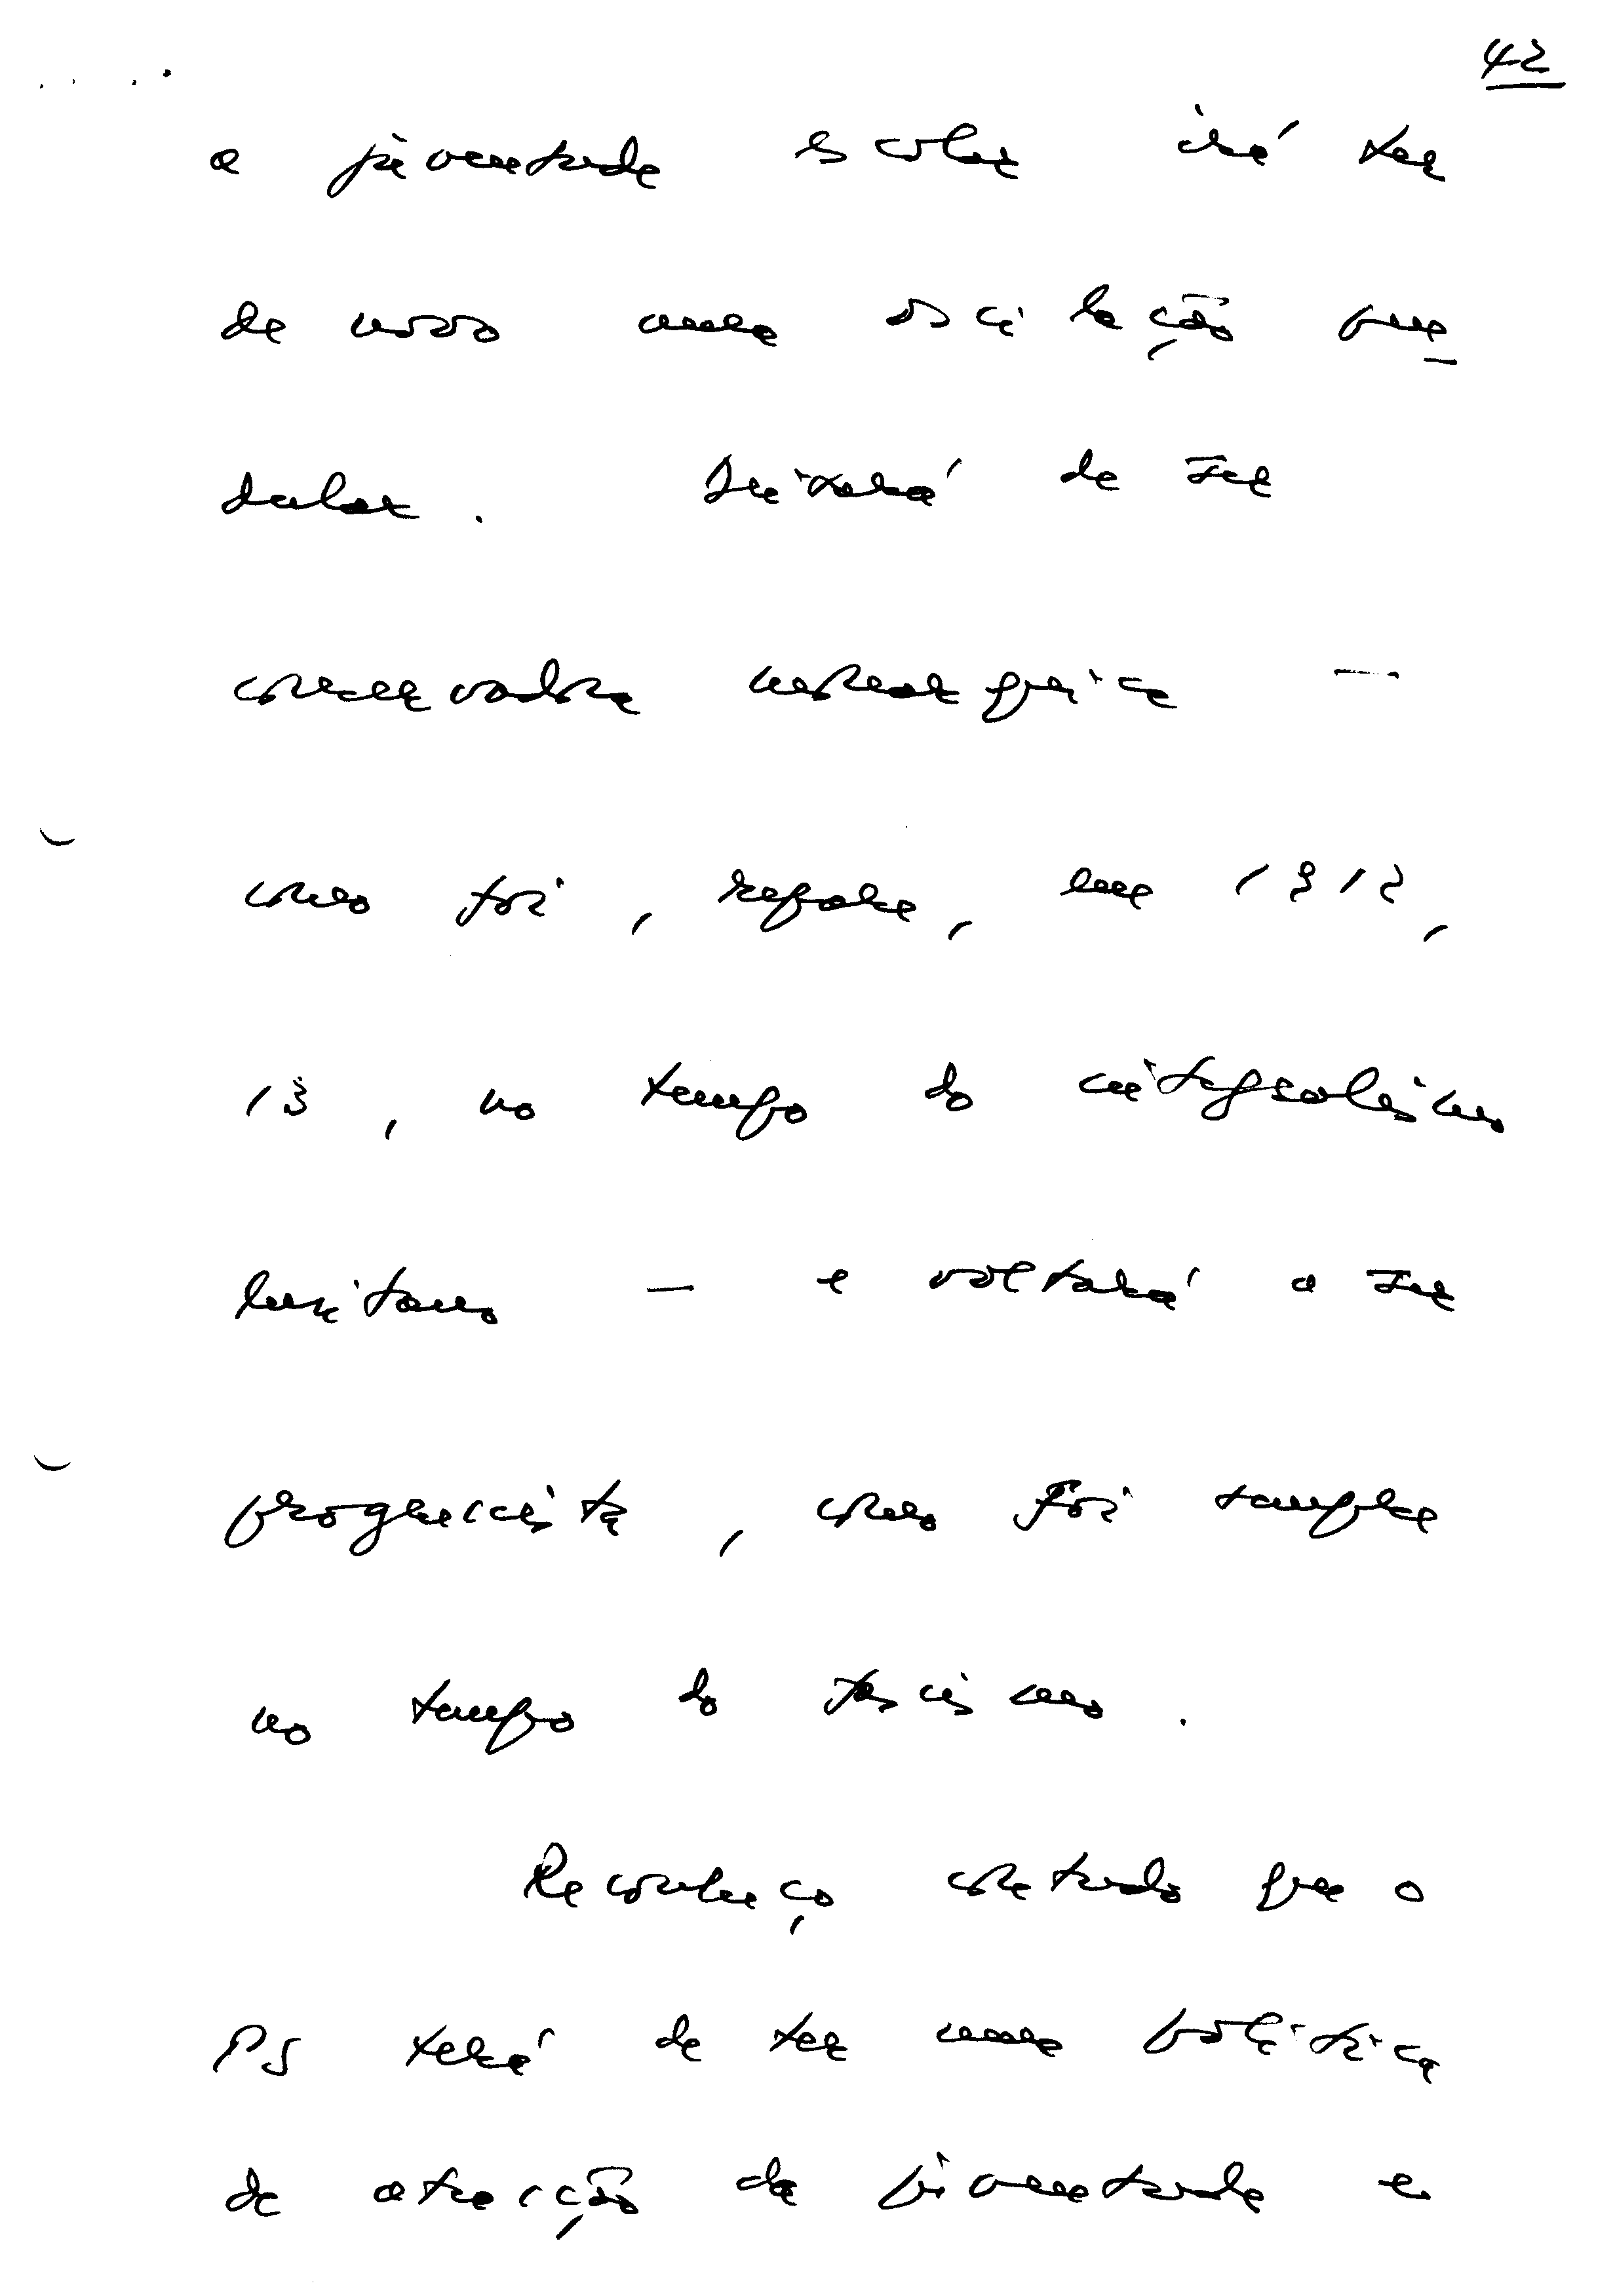 42
a juventude escolar irá ter
de novo uma oscilação pen-
dular. Deixará de ser
conservadora monárquica —
como foi, repare, em 1912,
13, no tempo do integralismo
lusitano — e voltará a ser
progressista, como foi sempre
no tempo do fascismo.
Reconheço contudo que o
PS terá de ter uma política
de atracção da juventude e